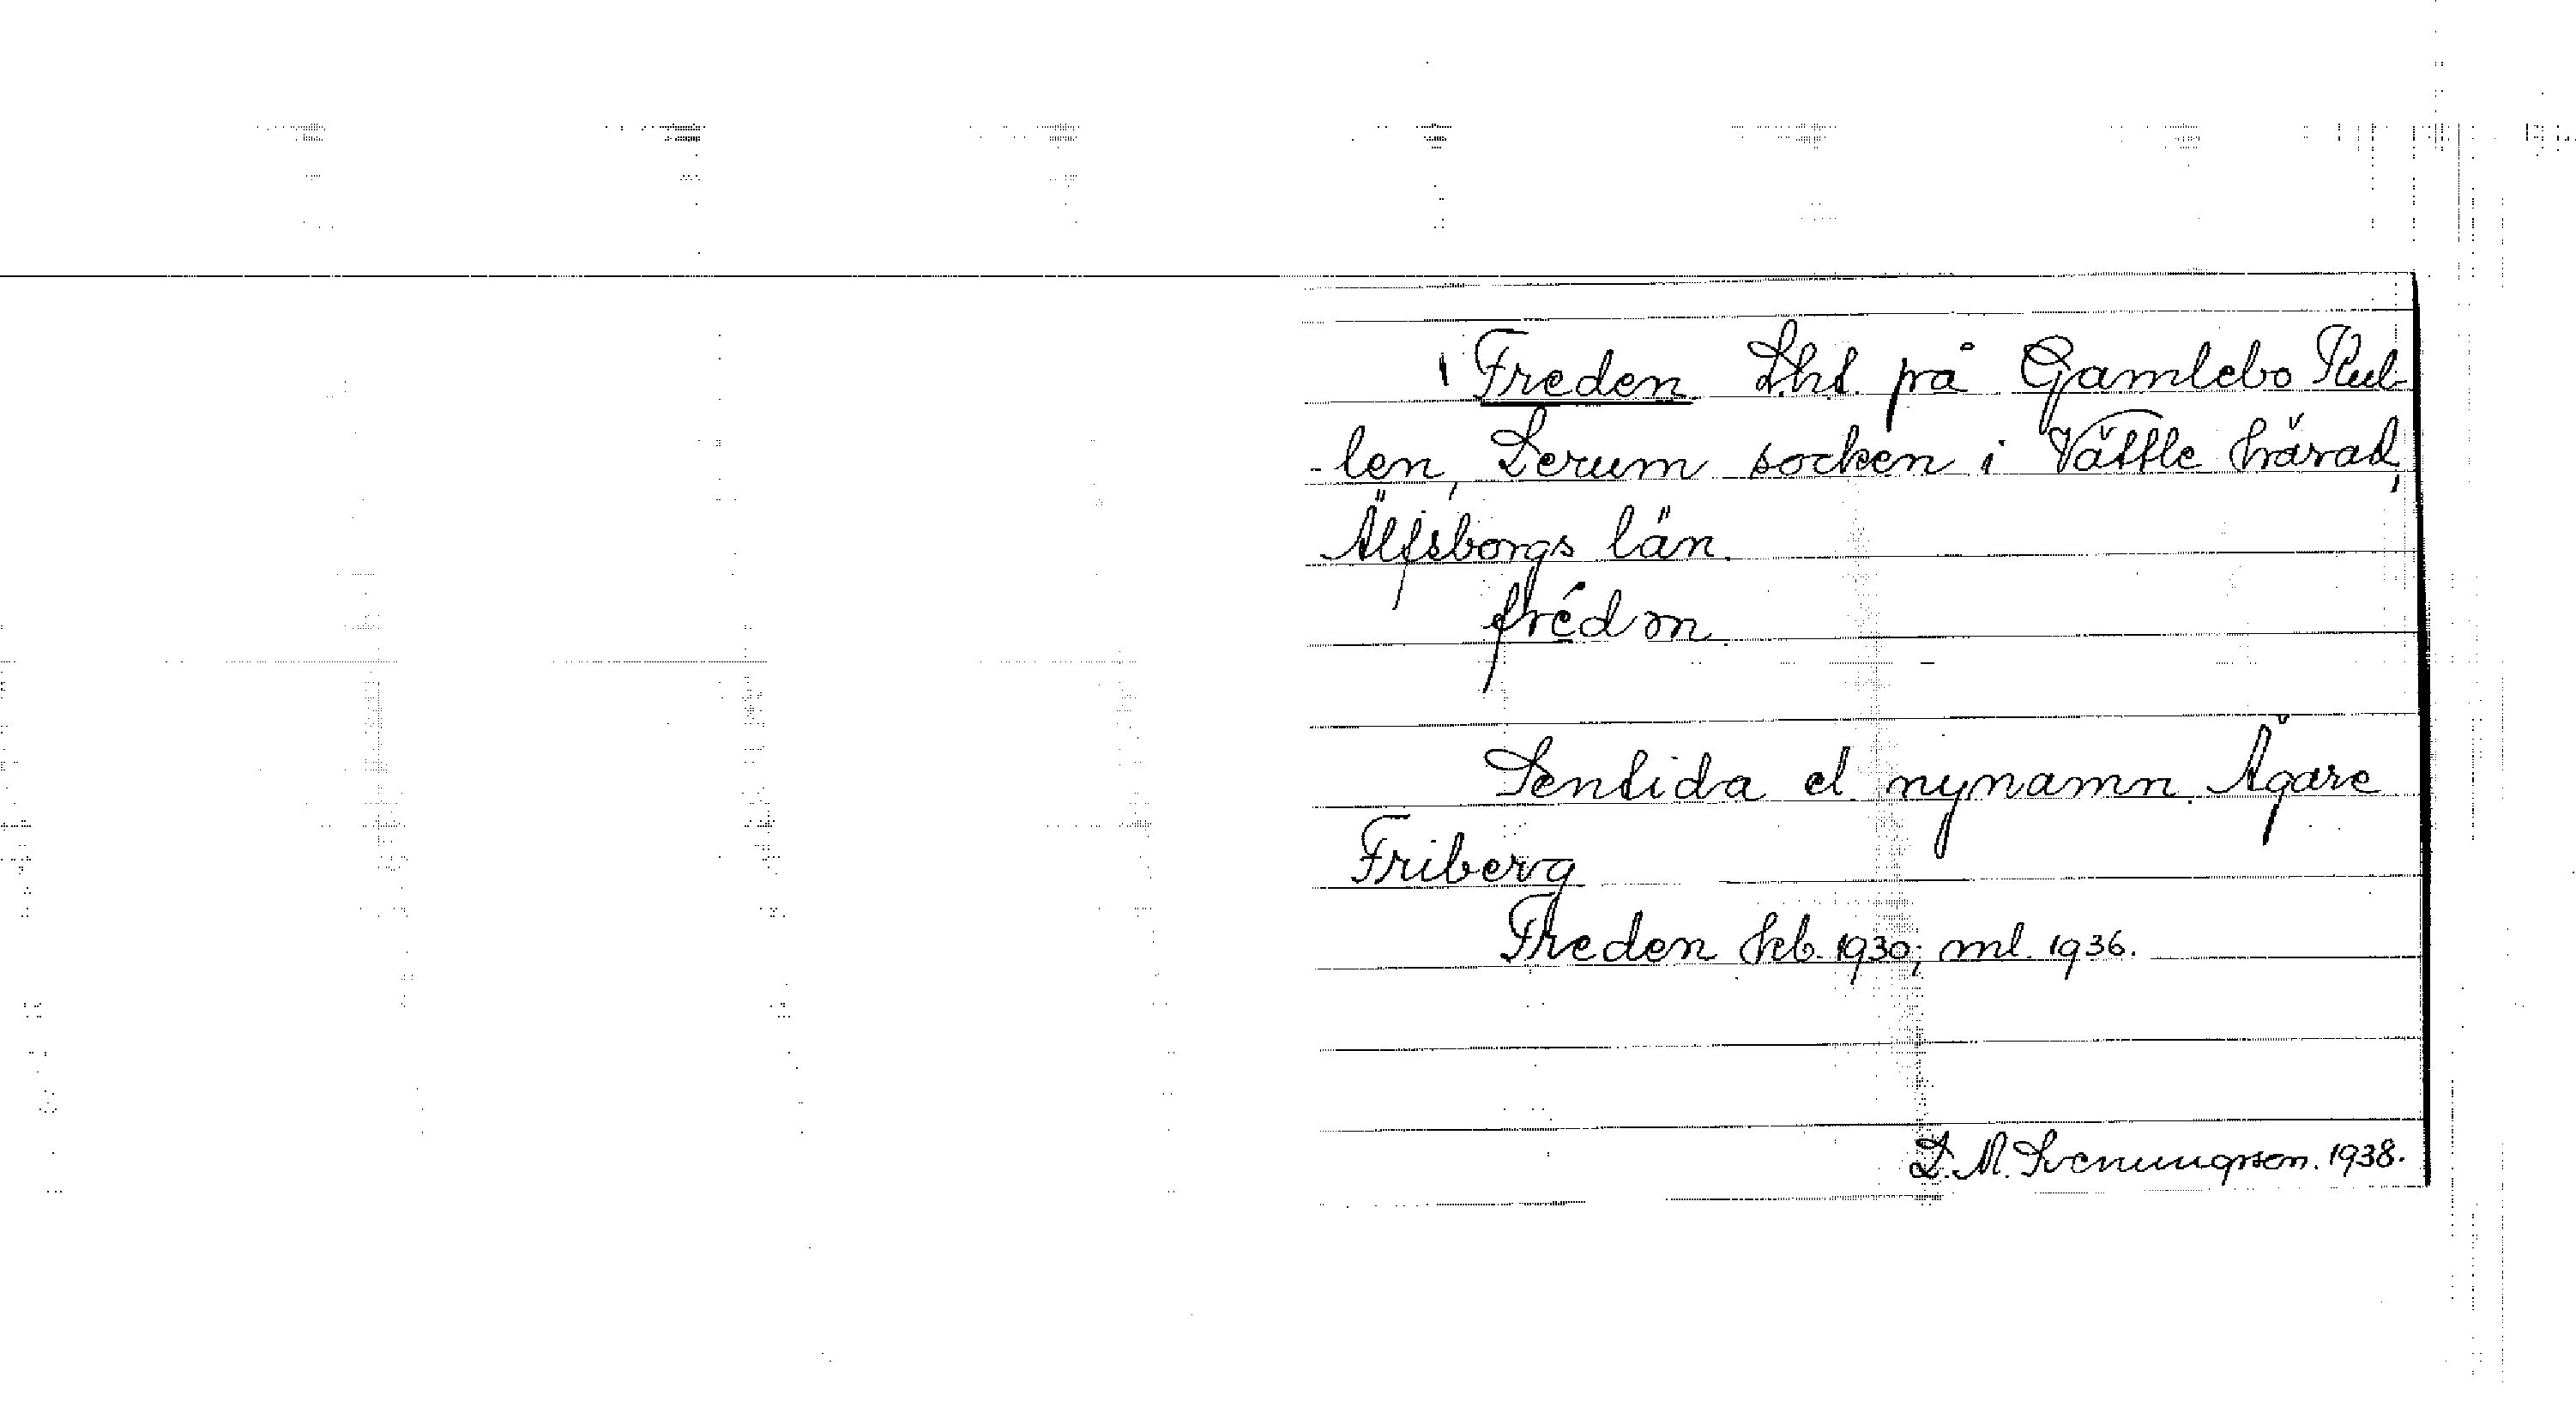 Freden Lht. på Gamlebo Kul-
-len, Lerum socken i Vättle härad,
Älfsborgs län.
fréd m
Sentida el. nynamn. Ägare
Friberg
Freden hkb. 1930; ml. 1936.
D. M. Svenungsson. 1938.